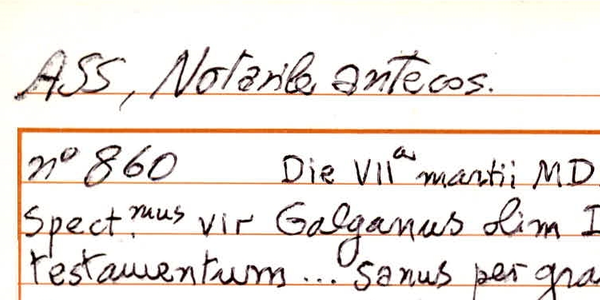 ASS, Notarile antecos.
nº 860 Die VIIª martii MD
Spect.mus vir Galganus olim
testamentum... sanus per gra